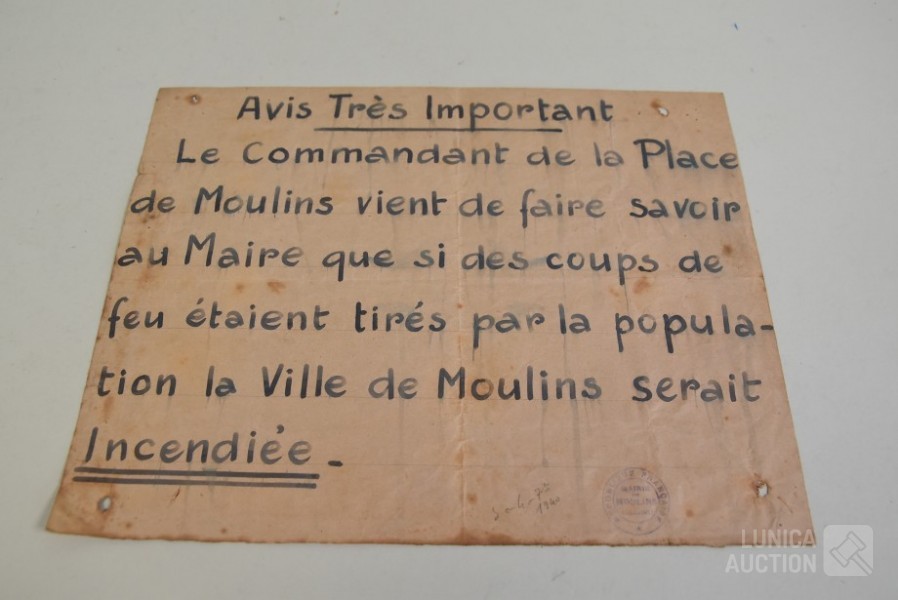 Avis Très Important
Le Commandant de la Place
de Moulins vient de faire savoir
au Maire que si des coups de
feu étaient tirés par la popula-
tion la Ville de Moulins serait
Incendiée.-
MAIRIE
DE
MOULINS
LUNICA
AUCTION